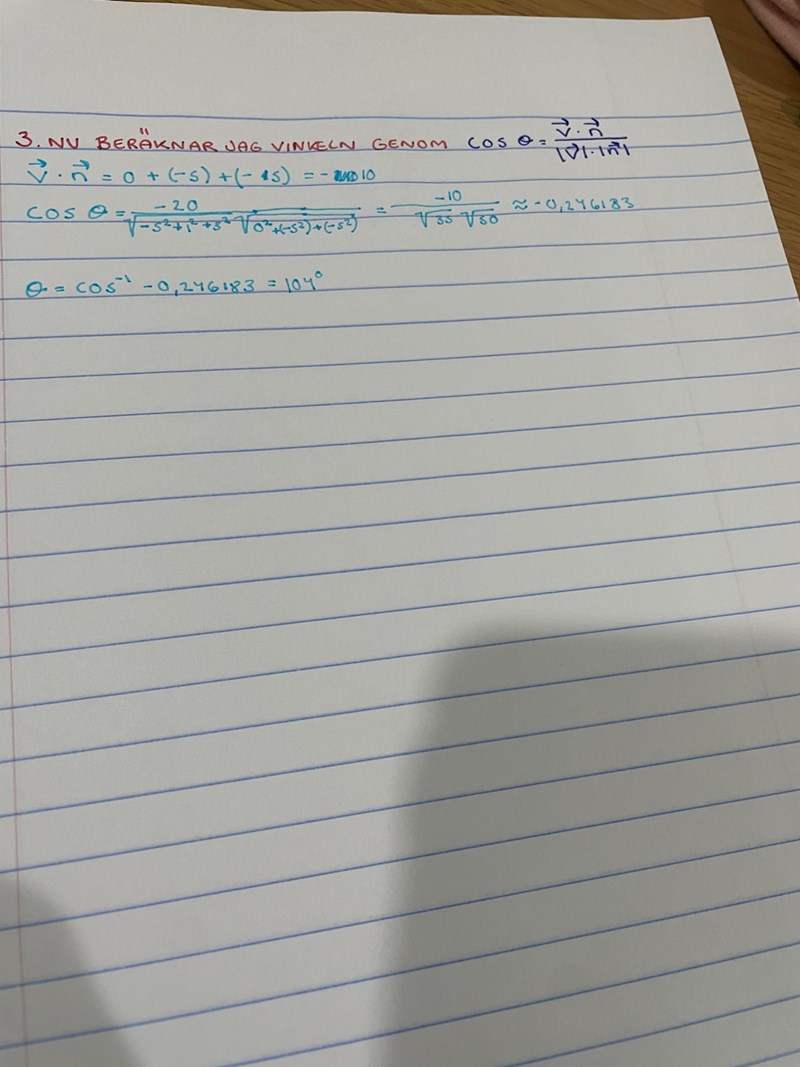 3. NU BERÄKNAR JAG VINKELN GENOM cos θ = \frac{\vec{v} · \vec{n}}{|\vec{v}| · |\vec{n}|}
\vec{v} · \vec{n} = 0 + (-5) + (-15) = -10
cos θ = \frac{-20}{\sqrt{-5²+1²+3²} \sqrt{0²+(-5²)+(-5²)}} = \frac{-10}{\sqrt{35} \sqrt{50}} ≈ -0,246183
θ = cos⁻¹ -0,246183 = 104°